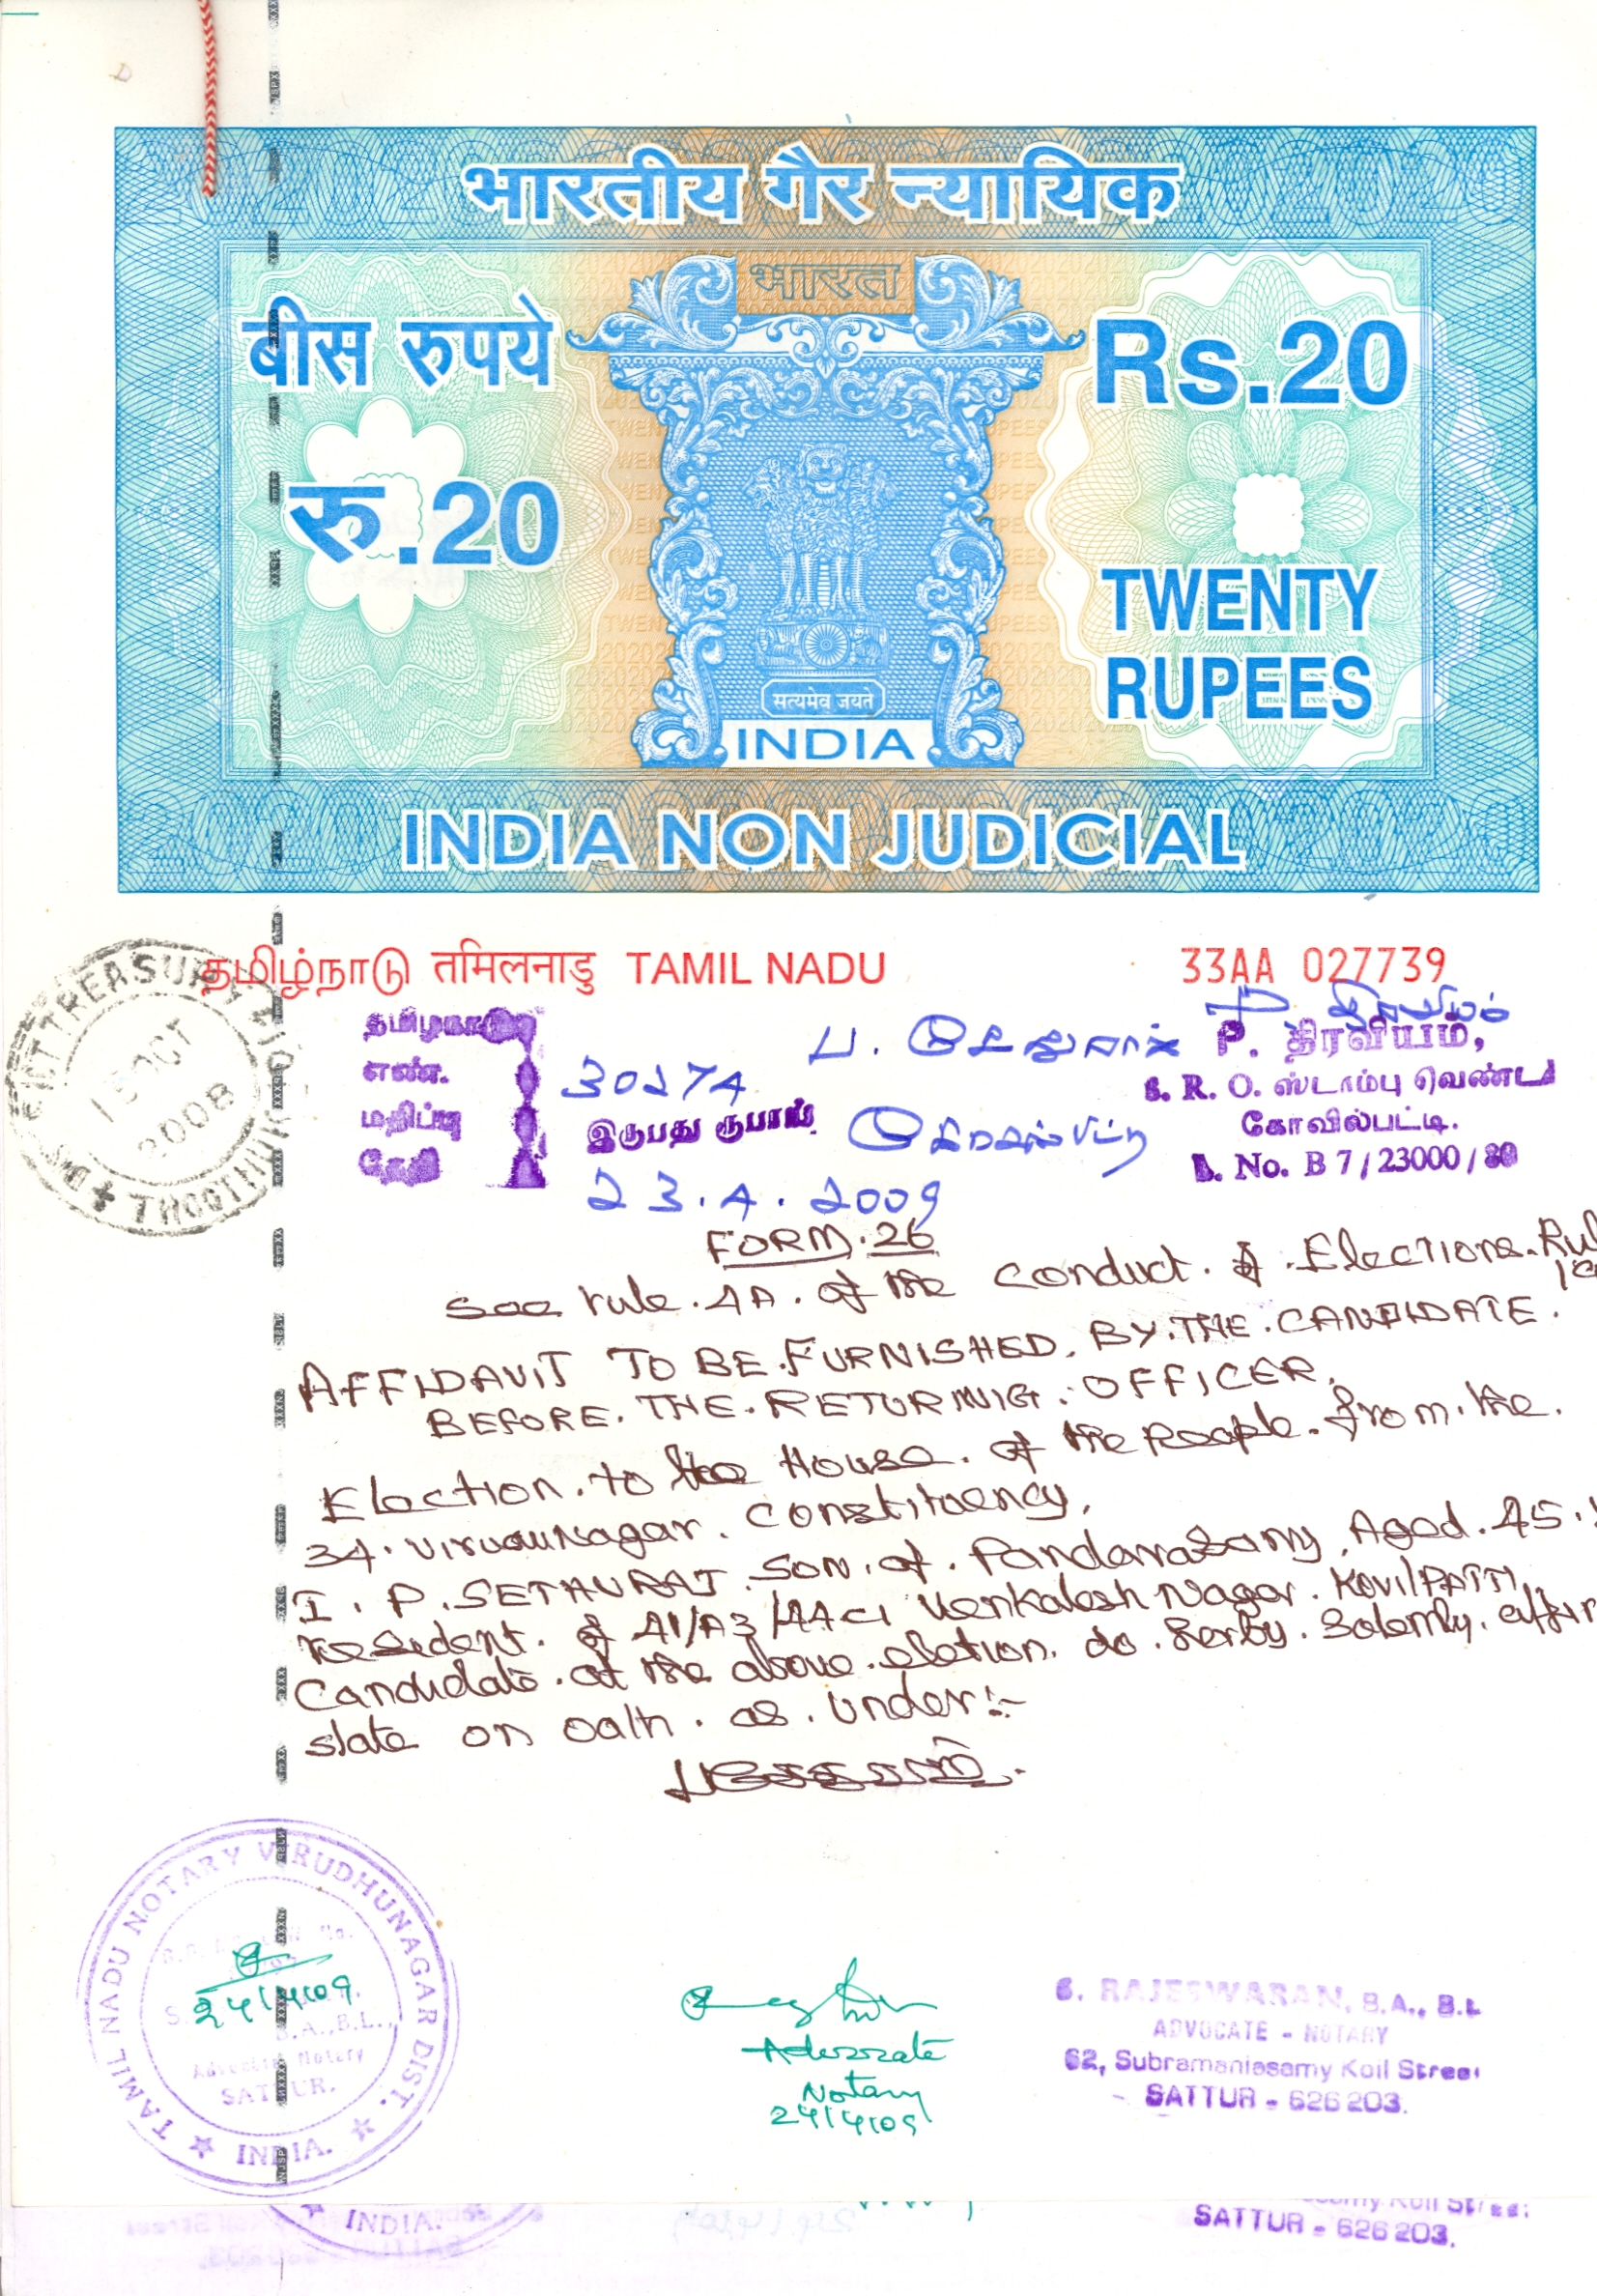 भारतीय गैर न्यायिक
भारत
बीस रुपये
Rs.20
रु.20
TWENTY
RUPEES
सत्यमेव जयते
INDIA
INDIA NON JUDICIAL
தமிழ்நாடு तमिलनाडु TAMIL NADU
33AA 027739
15 OCT
2008
தமிழ்நாடு
எண். 30274
மதிப்பு இருபது ரூபாய்
தேதி 23.4.2009
P. திரவியம்,
S. R. O. ஸ்டாம்பு வெண்டர்
கோவில்பட்டி.
L. No. B 7/23000/80
FORM.26
See rule.4A.of the Conduct.of.Elections.Rul
AFFIDAVIT TO BE.FURNISHED.BY.THE.CANDIDATE.
BEFORE.THE.RETURNING.OFFICER.
Election.to the House.of the People.from.the.
34.Virudunagar.Constituency,
I.P.SETHURAJ.SON.of.Pandarasamy,Aged.45.
resident.of A1/A3/44C1 Venkatesh Nagar.KovilPATTI,
Candidate.at the above.elction.do.herby.Solemly.affir
state on oath.as.under:-
TAMIL NADU NOTARY VIRUDHUNAGAR DIST.
B.A.,B.L.,
Advocate Notary
SATTUR.
INDIA.
24/4/09
Advocate
Notary
24/4/09
S. RAJESWARAN, B.A., B.L
ADVOCATE - NOTARY
62, Subramaniasamy Koil Street
SATTUR - 626 203.
INDIA.
SATTUR - 626 203.